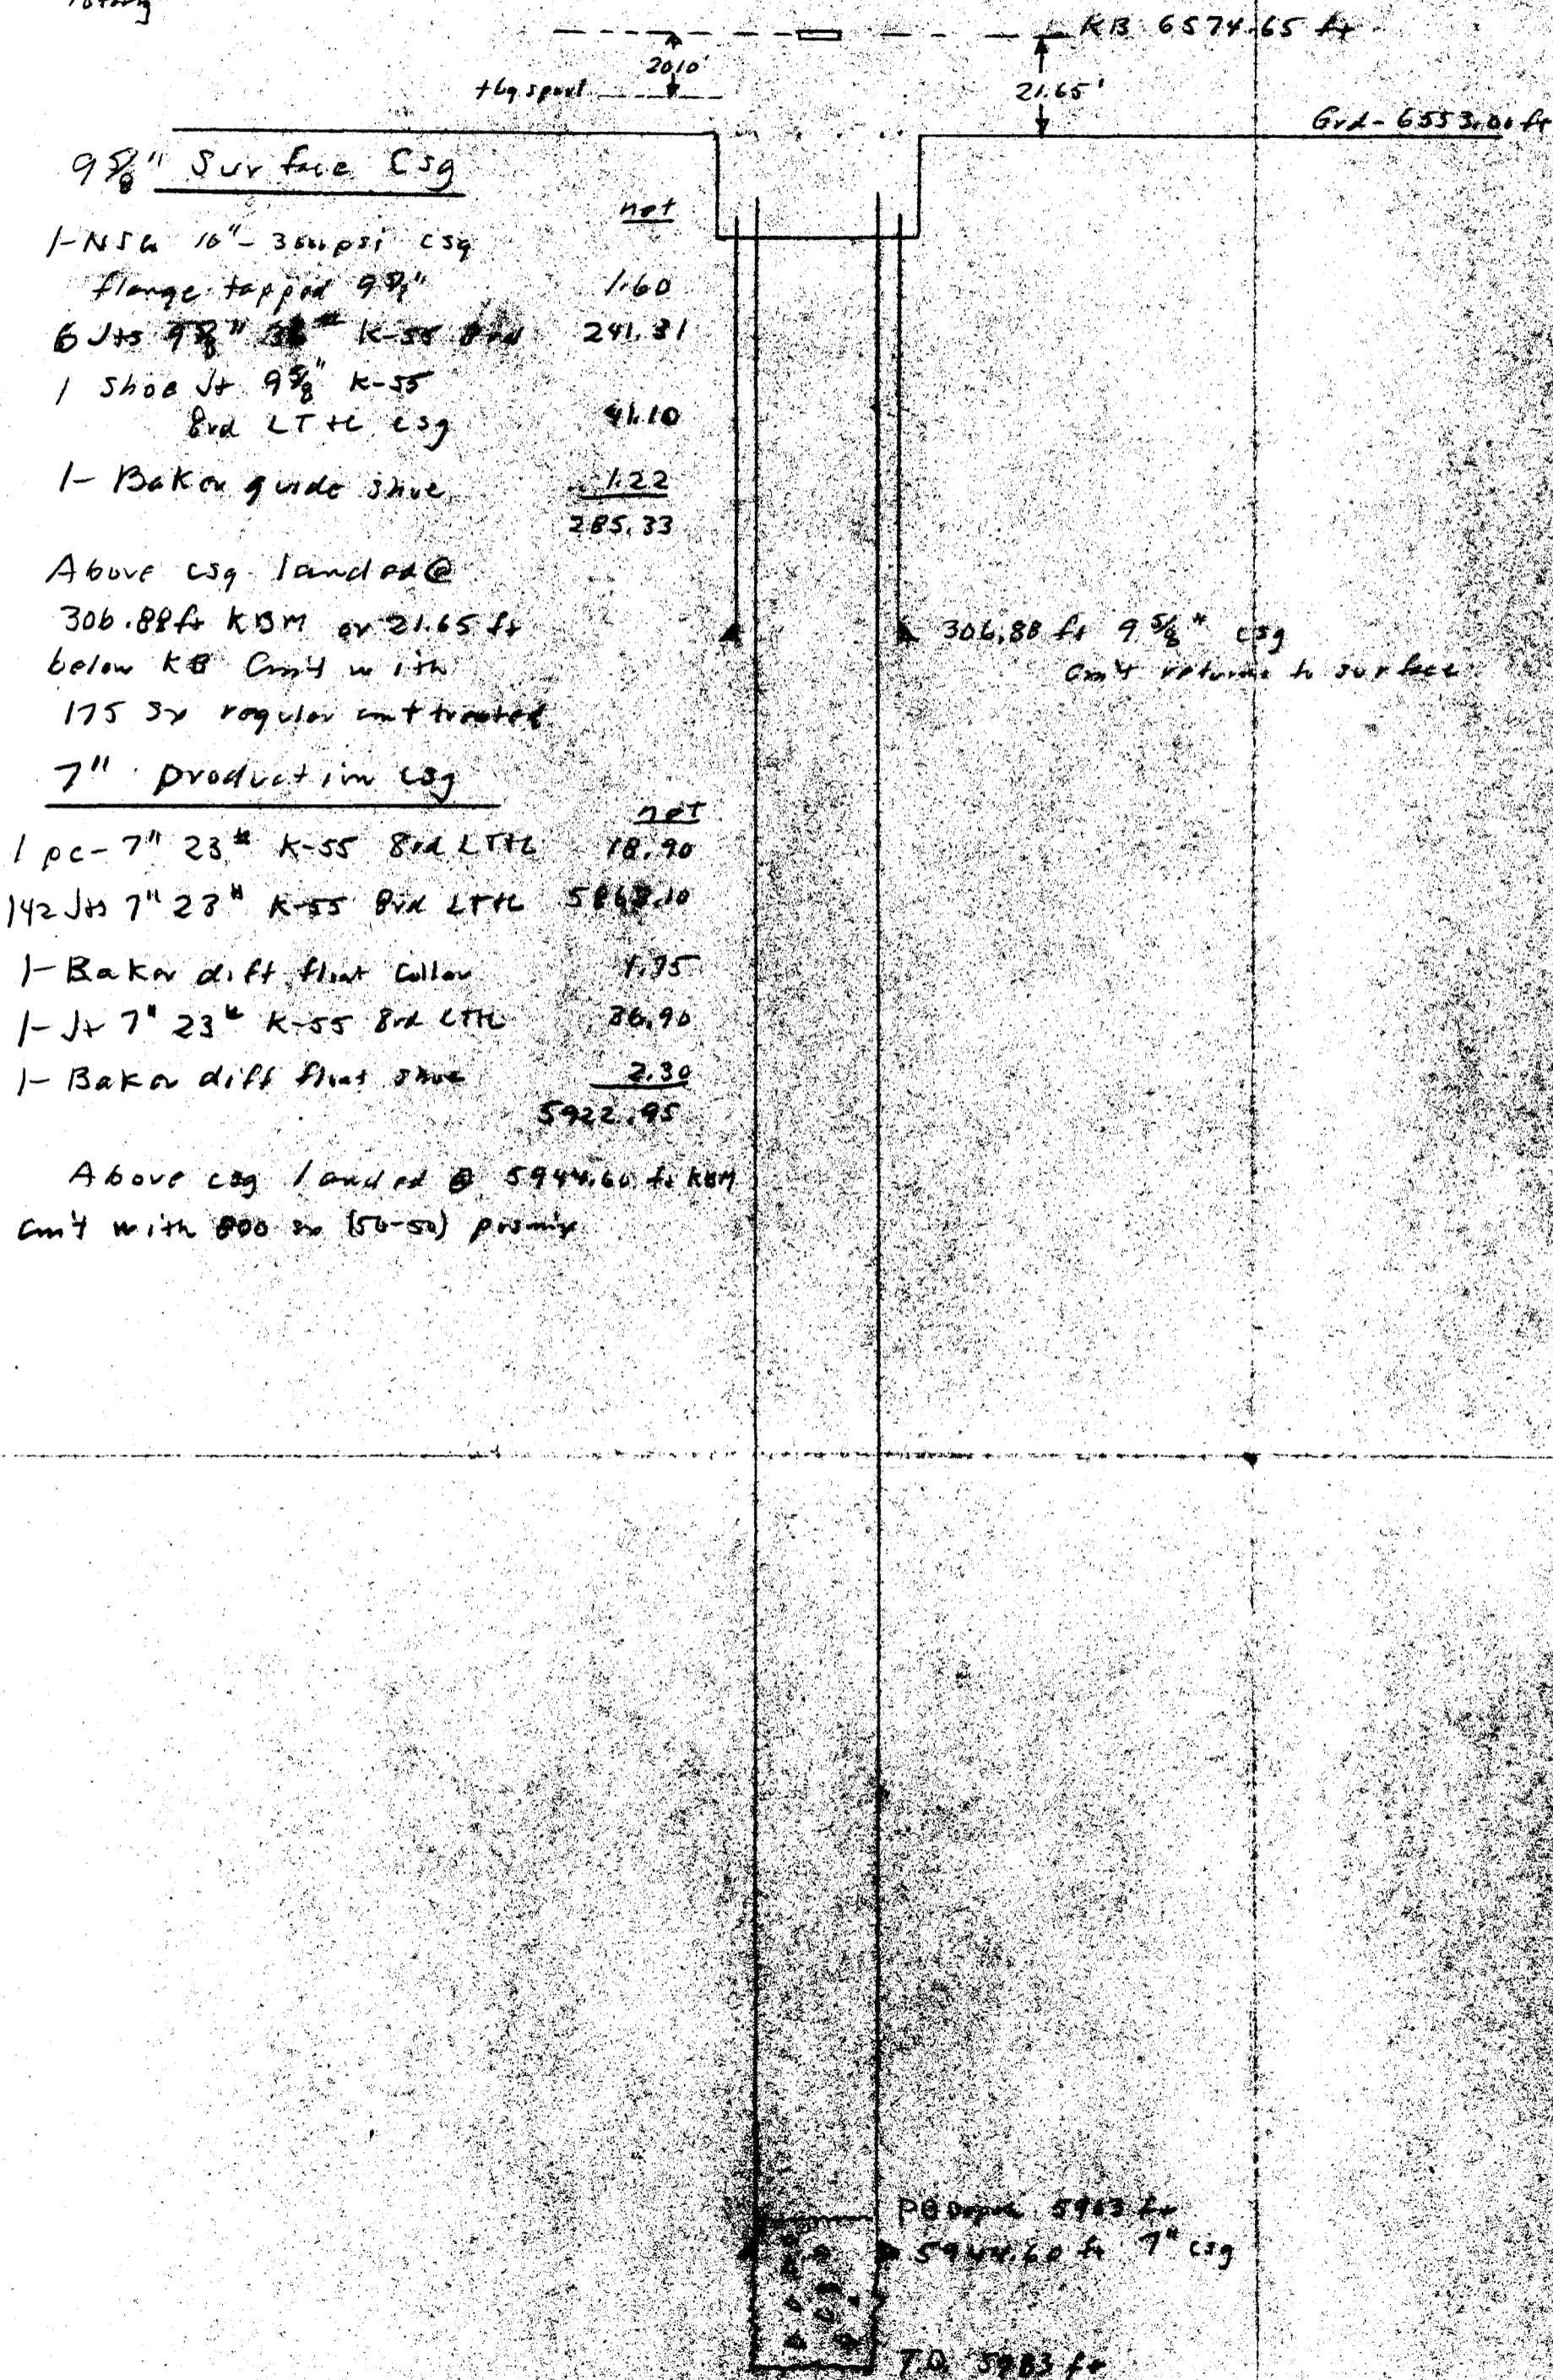 rotary
KB 6574.65 ft
20.10'
tbg spool
21.65'
Grd - 6553.00 ft
9 5/8" Surface Csg
net
1-NSCo 10"- 3000psi csg
flange tapped 9 5/8" 1.60
6 Jts 9 5/8" 36# K-55 8rd 241.31
1 Shoe Jt 9 5/8" K-55
8rd LT+C csg 41.10
1- Baker guide shoe 1.22
285.33
Above csg landed @
306.88 ft KBM or 21.65 ft
below KB Cm't with
175 sx regular cmt treated
306.88 ft 9 5/8" csg
Cm't returns to surface
7" production csg
net
1 pc- 7" 23# K-55 8rd LT+C 18.90
142 Jts 7" 23# K-55 8rd LT+C 5863.10
1- Baker diff float collar 1.75
1- Jt 7" 23# K-55 8rd LT+C 36.90
1- Baker diff float shoe 2.30
5922.95
Above csg landed @ 5944.60 ft KBM
Cm't with 800 sx (50-50) posmix
PB Depth 5903 ft
5944.60 ft 7" csg
T.D. 5983 ft